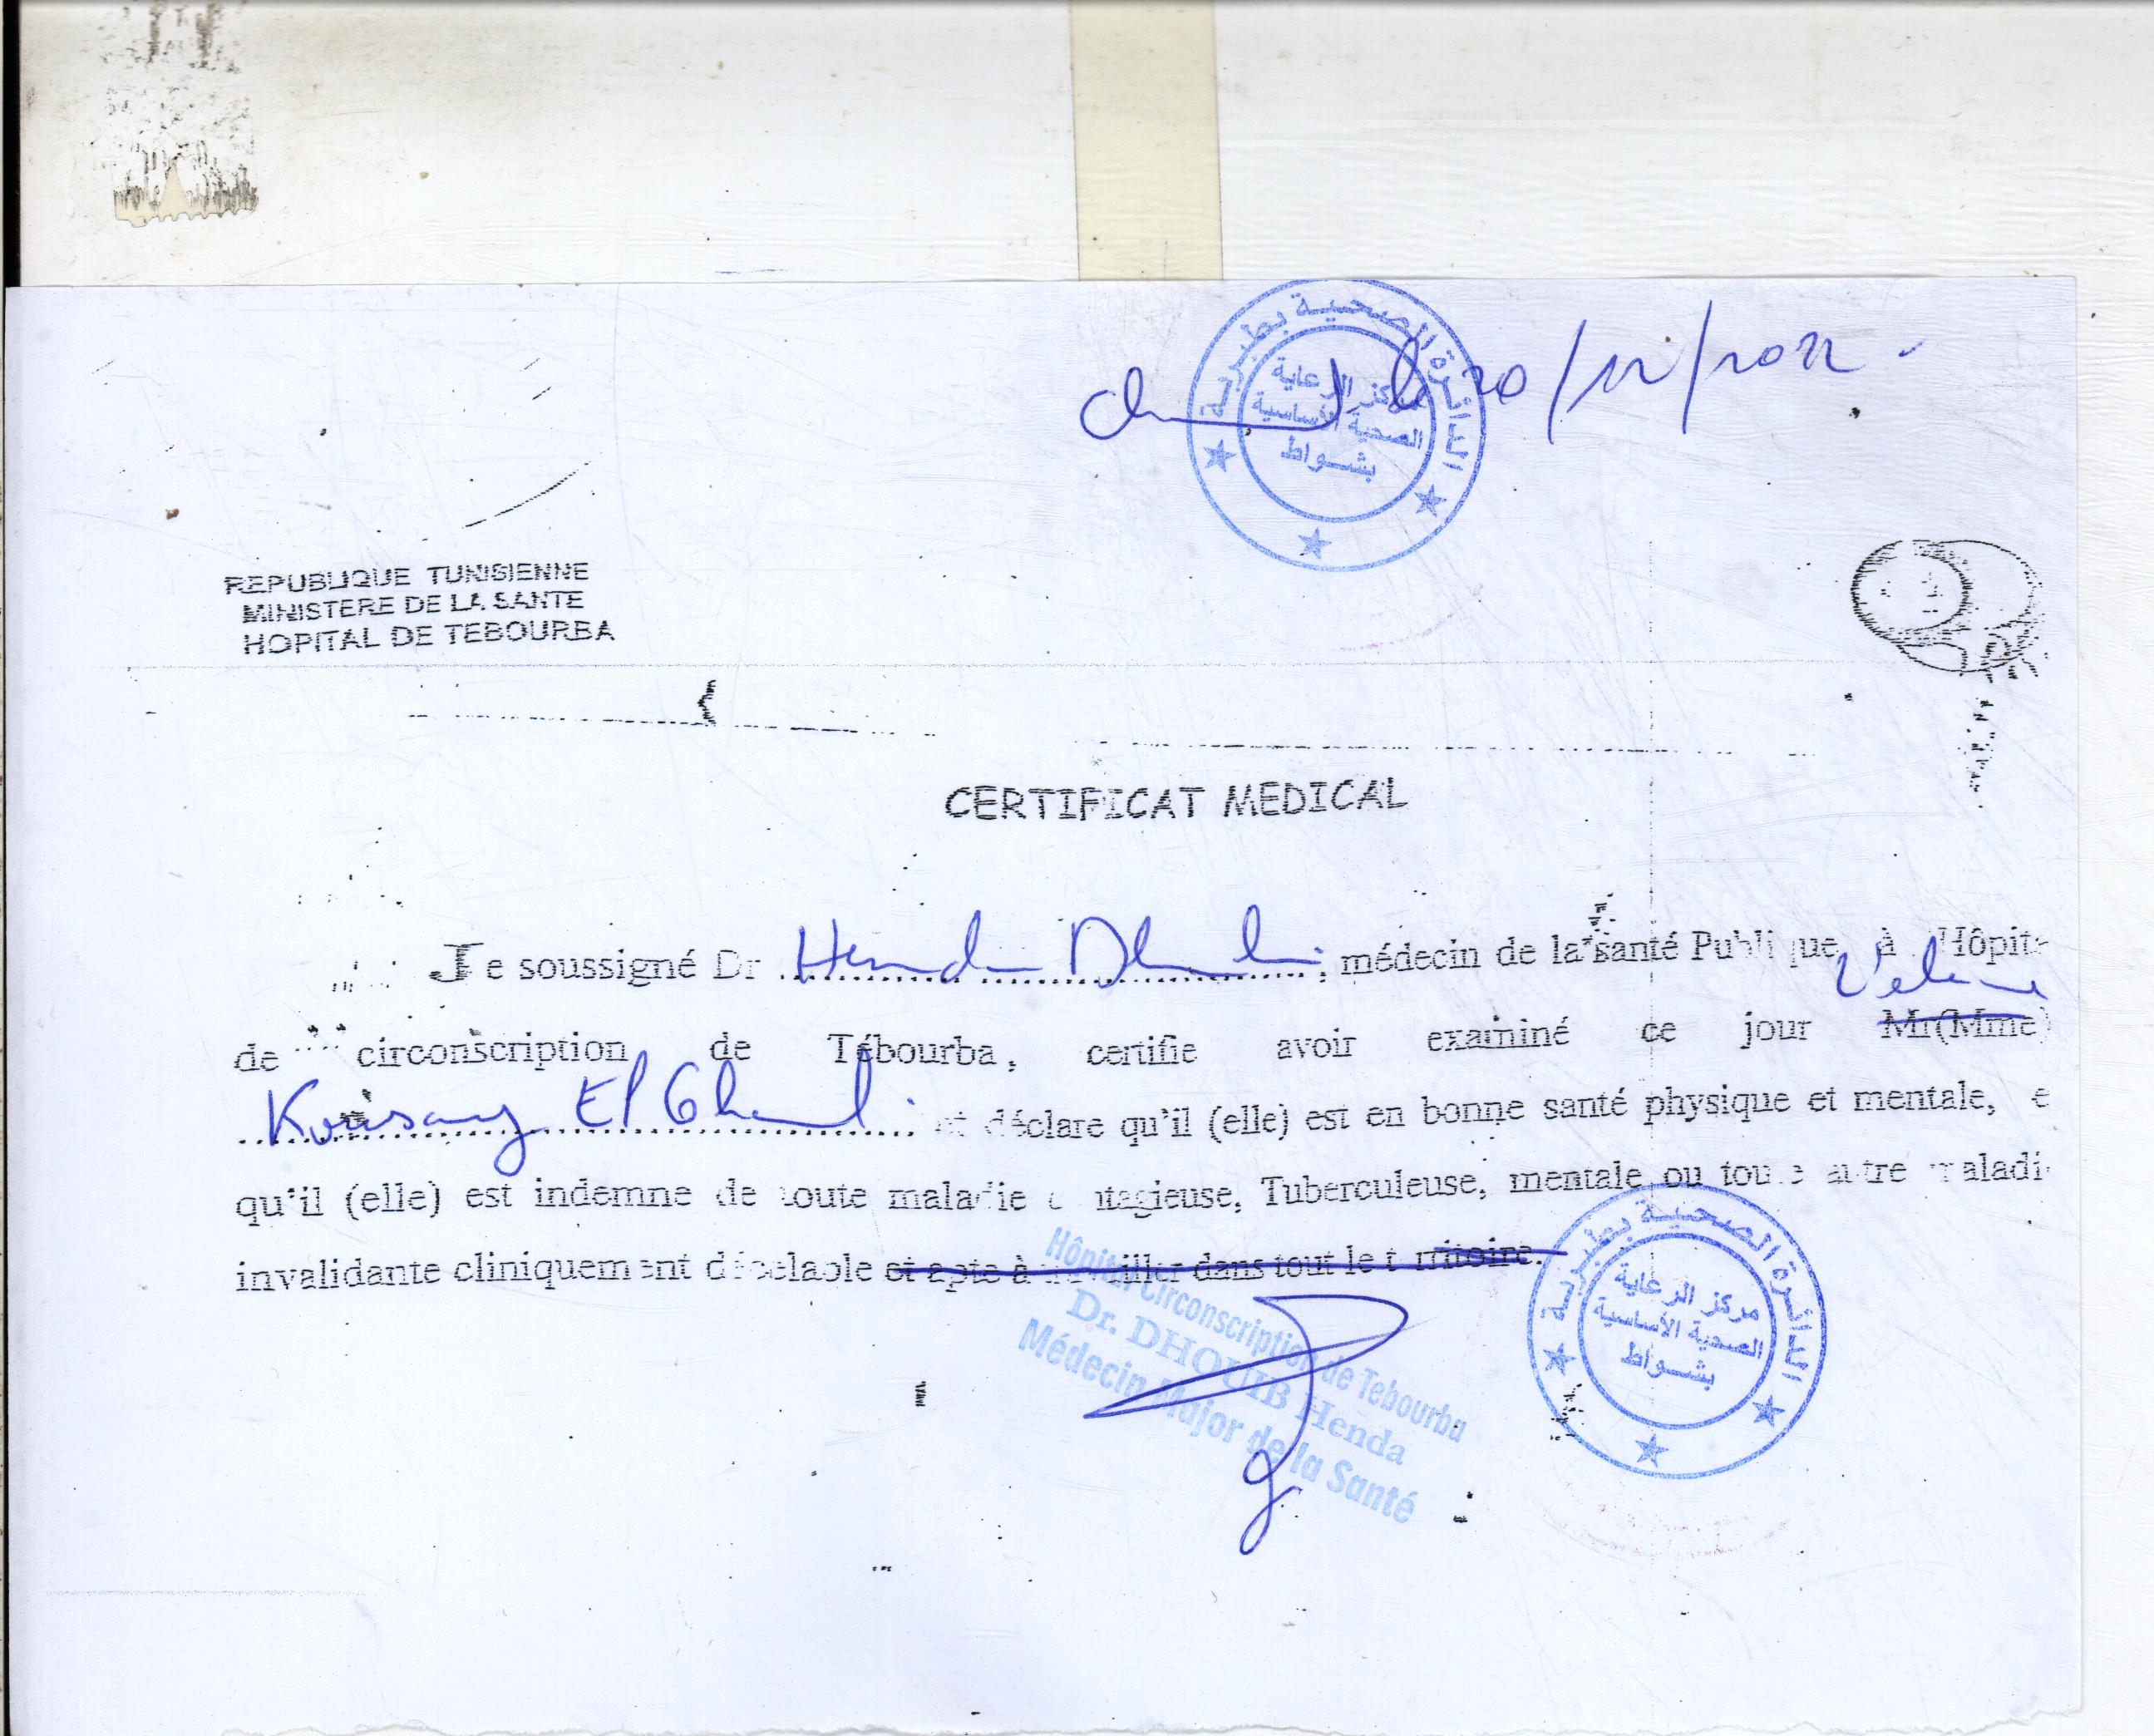 الدائرة الصحية بطبربة
مركز الرعاية
الصحية الأساسية
بشواط
le 20/12/2022
REPUBLIQUE TUNISIENNE
MINISTERE DE LA SANTE
HOPITAL DE TEBOURBA
CERTIFICAT MEDICAL
Je soussigné Dr Henda Dhouib, médecin de la santé Publique à l'Hôpita
l'élève
de circonscription de Tébourba, certifie avoir examiné ce jour Mr(Mme)
El et déclare qu'il (elle) est en bonne santé physique et mentale, e
qu'il (elle) est indemne de toute maladie contagieuse, Tuberculeuse, mentale ou toute autre maladi
invalidante cliniquement décelable et apte à travailler dans tout le territoire.
Hôpital Circonscription de Tebourba
Dr. DHOUIB Henda
Médecin Major de la Santé
الدائرة الصحية بطبربة
مركز الرعاية
الصحية الأساسية
بشواط